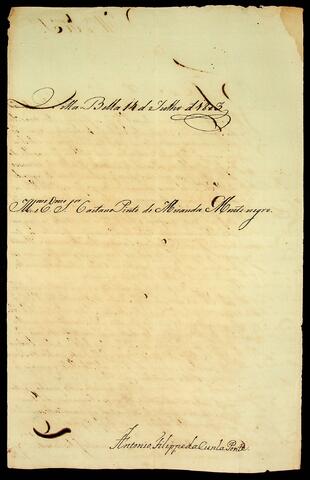 Villa Bella 14 d Julho d 1803
Illmo e Exmo Sor Caetano Pinto de Miranda Monte negro.
Antonio Filippe da Cunha Ponte